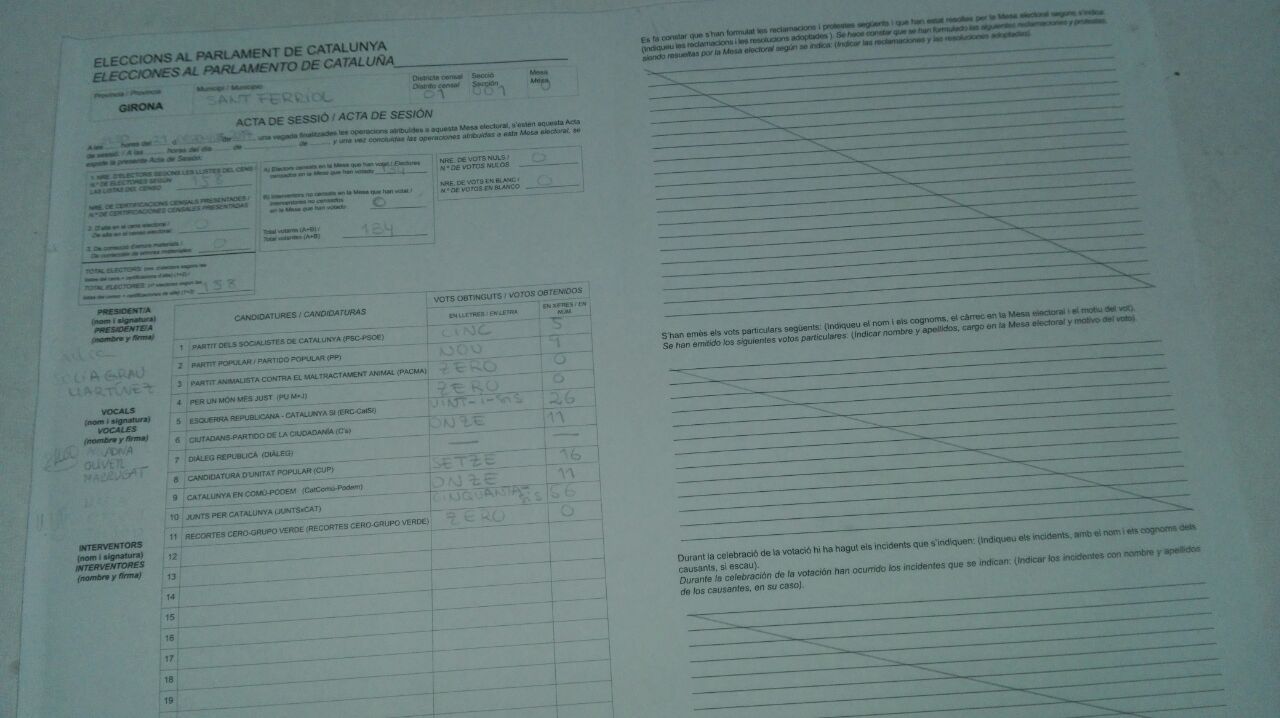 ELECCIONS AL PARLAMENT DE CATALUNYA
ELECCIONES AL PARLAMENTO DE CATALUÑA
Província / Provincia
GIRONA
Municipi / Municipio
SANT FERRIOL
Districte censal
Distrito censal
01
Secció
Sección
001
Mesa
Mesa
0
ACTA DE SESSIÓ / ACTA DE SESIÓN
A les hores del 21 d una vegada finalitzades les operacions atribuïdes a aquesta Mesa electoral, s'estén aquesta Acta
de sessió. / A las horas del día de de y una vez concluidas las operaciones atribuidas a esta Mesa electoral, se
expide la presente Acta de Sesión:
1. NRE. D'ELECTORS SEGONS LES LLISTES DEL CENS
N.º DE ELECTORES SEGÚN
LAS LISTAS DEL CENSO 158
NRE. DE CERTIFICACIONS CENSALS PRESENTADES /
N.º DE CERTIFICACIONES CENSALES PRESENTADAS
2. D'alta en el cens electoral /
De alta en el censo electoral: 0
3. De correcció d'errors materials /
De corrección de errores materiales: 0
TOTAL ELECTORS:
TOTAL ELECTORES: 158
A) Electors censats en la Mesa que han votat / Electores
censados en la Mesa que han votado 134
B) Interventors no censats en la Mesa que han votat /
Interventores no censados
en la Mesa que han votado 0
Total votants (A+B) /
Total votantes (A+B) 134
NRE. DE VOTS NULS /
N.º DE VOTOS NULOS 0
NRE. DE VOTS EN BLANC /
N.º DE VOTOS EN BLANCO 0
PRESIDENT/A
(nom i signatura)
PRESIDENTE/A
(nombre y firma)
GRAU
MARTÍNEZ
VOCALS
(nom i signatura)
VOCALES
(nombre y firma)
ARIADNA
OLIVER
MADRUGAT
INTERVENTORS
(nom i signatura)
INTERVENTORES
(nombre y firma)
CANDIDATURES / CANDIDATURAS
VOTS OBTINGUTS / VOTOS OBTENIDOS
EN LLETRES / EN LETRA
EN XIFRES / EN NÚM.
1 PARTIT DELS SOCIALISTES DE CATALUNYA (PSC-PSOE) CINC 5
2 PARTIT POPULAR / PARTIDO POPULAR (PP) NOU 9
3 PARTIT ANIMALISTA CONTRA EL MALTRACTAMENT ANIMAL (PACMA) ZERO 0
4 PER UN MÓN MÉS JUST (PU M+J) ZERO 0
5 ESQUERRA REPUBLICANA - CATALUNYA SÍ (ERC-CatSí) VINT-I-SIS 26
6 CIUTADANS-PARTIDO DE LA CIUDADANÍA (C's) ONZE 11
7 DIÀLEG REPUBLICÀ (DIÀLEG) — —
8 CANDIDATURA D'UNITAT POPULAR (CUP) SETZE 16
9 CATALUNYA EN COMÚ-PODEM (CatComú-Podem) ONZE 11
10 JUNTS PER CATALUNYA (JUNTSxCAT) CINQUANTA-SIS 56
11 RECORTES CERO-GRUPO VERDE (RECORTES CERO-GRUPO VERDE) ZERO 0
12
13
14
15
16
17
18
19
Es fa constar que s'han formulat les reclamacions i protestes següents i que han estat resoltes per la Mesa electoral segons s'indica:
(Indiqueu les reclamacions i les resolucions adoptades). Se hace constar que se han formulado las siguientes reclamaciones y protestas,
siendo resueltas por la Mesa electoral según se indica: (Indicar las reclamaciones y las resoluciones adoptadas).
S'han emès els vots particulars següents: (Indiqueu el nom i els cognoms, el càrrec en la Mesa electoral i el motiu del vot).
Se han emitido los siguientes votos particulares: (Indicar nombre y apellidos, cargo en la Mesa electoral y motivo del voto).
Durant la celebració de la votació hi ha hagut els incidents que s'indiquen: (Indiqueu els incidents, amb el nom i els cognoms dels
causants, si escau).
Durante la celebración de la votación han ocurrido los incidentes que se indican: (Indicar los incidentes con nombre y apellidos
de los causantes, en su caso).